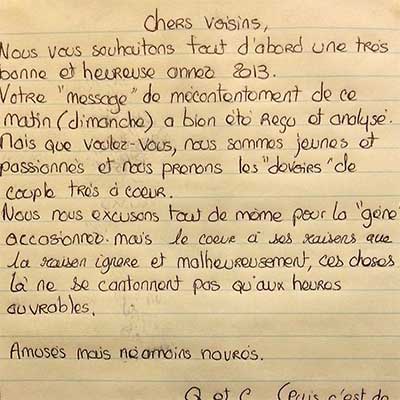 Chers voisins,
Nous vous souhaitons tout d'abord une très
bonne et heureuse année 2013.
Votre "message" de mécontentement de ce
matin (dimanche) a bien été reçu et analysé.
Mais que voulez-vous, nous sommes jeunes et
passionnés et nous prenons les "devoirs" de
couple très à coeur.
Nous nous excusons tout de même pour la "gêne"
occasionnée. mais le coeur a ses raisons que
la raison ignore et malheureusement, ces choses
là ne se cantonnent pas qu'aux heures
ouvrables.
Amusés mais néamoins navrés.
Q et C (Puis c'est